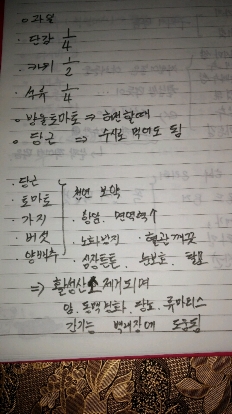 ○ 과일
· 단감 1/4
· 키위 1/2
· 석류 1/4
○ 방울토마토 ⇒
○ 당근 ⇒ 수시로 먹어도 됨
· 당근
· 토마토
· 가지
· 버섯
· 양배추
천연 보약
· 항암 · 면역력↑
· 노화방지 · 혈관깨끗
· 심장튼튼 · 눈보호
⇒ 활성산소 제거되며
암. 동맥경화. 당뇨. 류마티스
감기 백내장에 도움됨